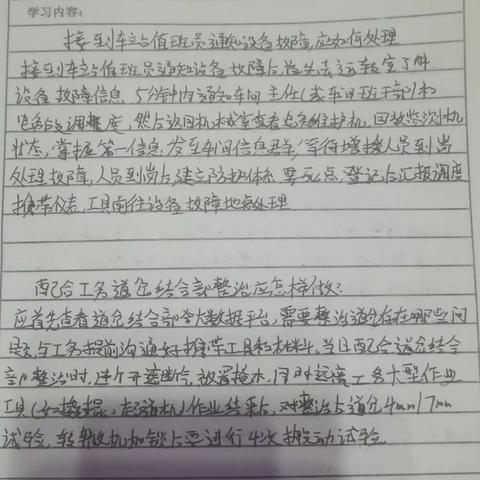 学习内容:
接到车站值班员通知设备故障应如何处理
接到车站值班员通知设备故障后,首先去运转室了解
设备故障信息,5分钟内通知车间主任(或车间班干部)和
电务段调度,然后返回机械室查看电务维护机,回放监测机
状态,掌握第一信息,发至车间信息群,等待增援人员到岗
处理故障,人员到岗后,建立防护体系,要完点,登记后汇报调度
携带仪表、工具前往设备故障地点处理
配合工务道岔结合部整治应怎样做?
应首先查看道岔结合部大数据平台,需要整治道岔存在哪些问
题,与工务提前沟通好携带工具和材料。当日配合道岔结合
部整治时,进行开遮断,放置 同时远离工务大型作业
工具(如捣镐、起道机)作业结束后,对整治后道岔4mm/7mm
试验,转辙机加锁后要进行4次搬动试验